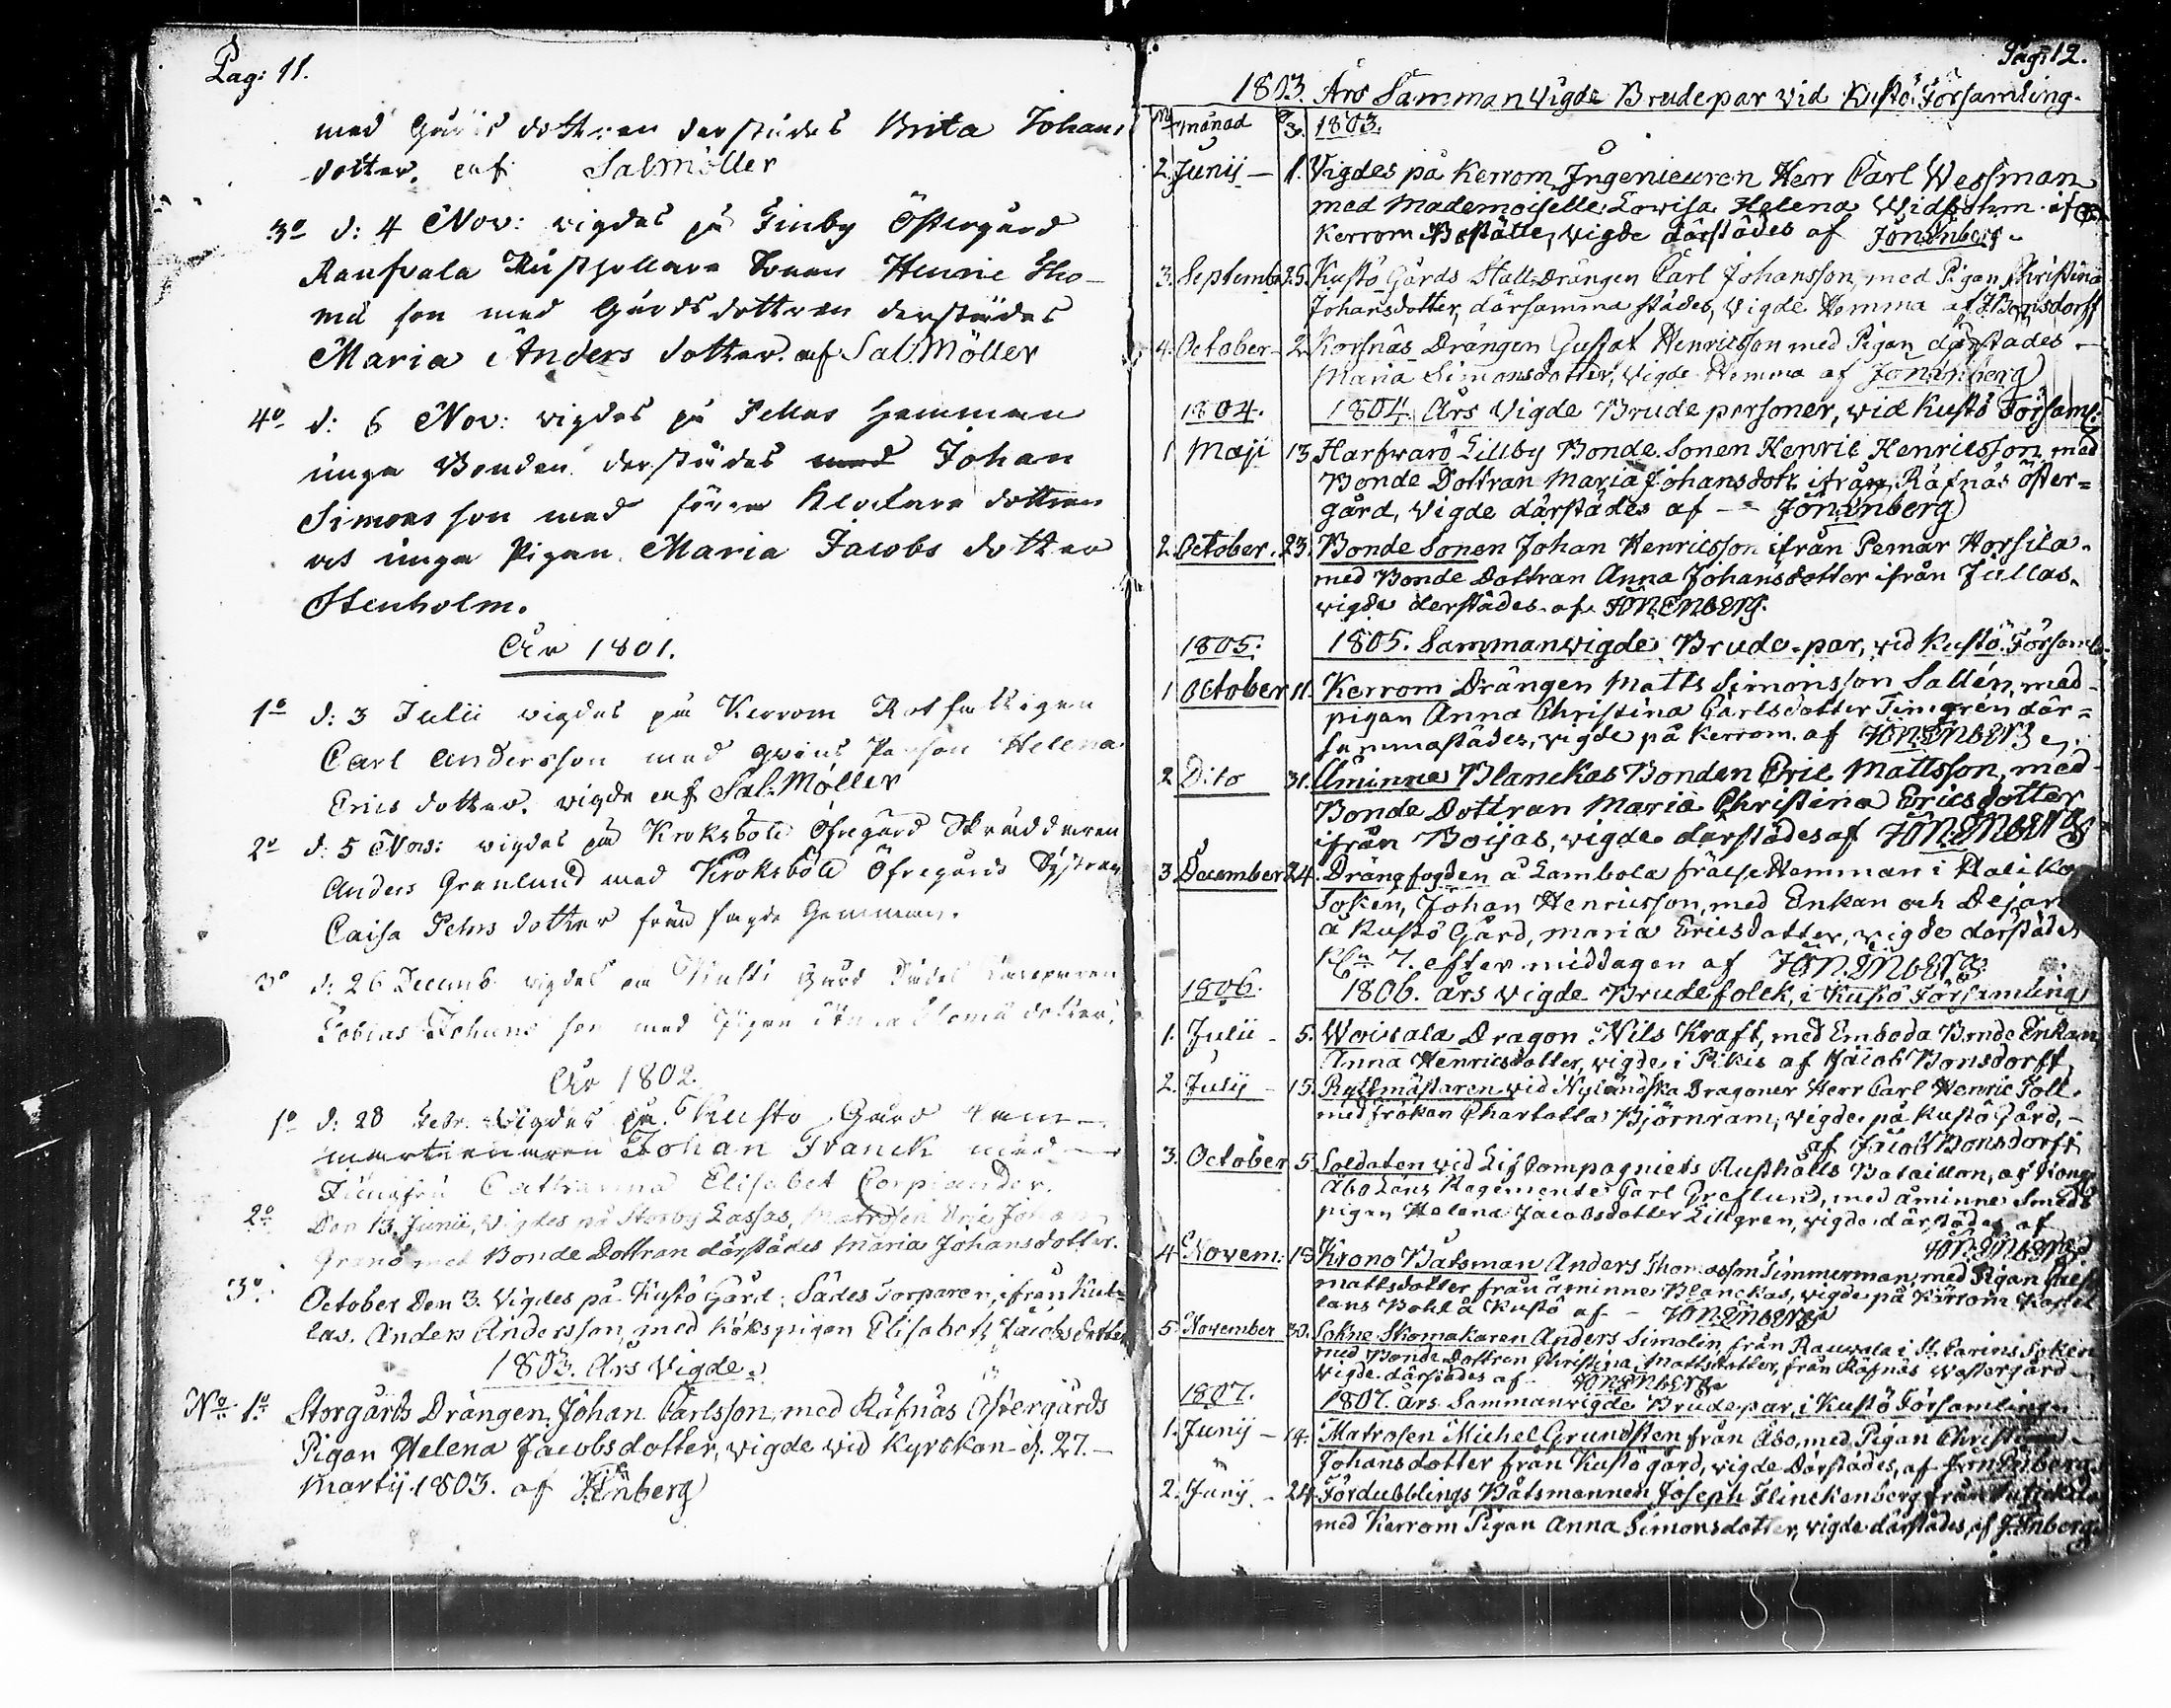 Pag: 11.
med Gårds dottren derstädes Brita Johans
dotter. af Sal Möller
3o d: 4 Nov: vigdes på Ginby Östergård
Raufvala Rusthollare Sonen Henric Tho-
mæ son med Gårdsdottren derstädes
Maria Anders dotter. af Sal. Möller
4o d: 6 Nov: vigdes på Hemman
unga Bonden derstädes med Johan
Simons son med Klockare dottren
unga Pigan Maria Jacobs dotter
Stenholm.
År 1801.
1o d: 3 Julii vigdes på Kerrom Rotfattigen
Carl Andersson med Helena
Erics dotter. vigde af Sal. Möller
2o d: 5 Nov: vigdes på Kroksböle Öfregård Skräddaren
Anders Grenlund med Kroksböle Öfregårds Systran
Caisa Pehrs dotter från sagde Hemman.
3o d: 26 Decemb. vigdes på Gård
Tobias Johans son med Pigan Thomæ dotter.
År 1802.
1o d: 28 Febr. Vigdes på Kustö Gård
Johan Franck med
Catharina Elisabet Corpiander.
2o Den 13 Junii, Vigdes på Storby Lassas, Matrosen Eric Johan
Grano med Bonde Dottran därstädes Maria Johansdotter.
3o. October Den 3. Vigdes på Kustö Gård, Sädes Torparen, ifrån Kul-
las. Anders Andersson, med Kökspigan Elisabeth Jacobsdotter
1803. Års Vigde.
No. 1o Storgårds Drängen Johan Carlsson, med Räfnäs Östergårds
Pigan Helena Jacobsdotter, vigde vid Kyrckan d. 27.-
Martij. 1803. af Jönenberg
Pag: 12.
1803. Års Sammanvigde Brudepar vid Kustö Församling.
månad 1803.
2. Junij - 1. Vigdes på Kerrom Ingenieuren Herr Carl Wessman
med Mademoiselle Lovisa Helena Widbohm af
Kerrom Boställe, vigde därstädes af Jönenberg.
3. Septemb. 25. Kustö Gårds Stall-Drängen Carl Johansson, med Pigan Christina
Johansdotter, därsamma städes, Vigde Hemma af J. Bonsdorff
4. October - 2. Korsnäs Drängen Gustaf Henricsson med Pigan därstädes -
Maria Simonsdotter, Vigde Hemma af Jönenberg
1804. 1804. Års Vigde Brude personer, vid Kustö Församl:
1 Maji 13 Harfvarö Lillby Bonde Sonen Henric Henricsson, med
Bonde Dottran Maria Johansdott. ifrån Räfnäs öster=
gård, Vigde därstädes af - - Jönenberg
2. October. 23. Bonde Sonen Johan Henricsson ifrån Pemar Horsila.
med Bonde Dottran Anna Johansdotter ifrån Jullas.
vigde derstädes af Jönenberg.
1805. 1805. Sammanvigde Brude-par, vid Kustö Församl:
1 October 11. Kerrom Drängen Matts Simonsson Sallén, med
pigan Anna Christina Carlsdotter Timgren där=
sammastädes, vigde på Kerrom. af Jönenberg
2 Dito 31. Åminne Blanckas Bonden Eric Mattsson, med
Bonde Dottran Maria Christina Ericsdotter
ifrån Boijas, vigde därstädes af Jönenberg
3 December 24. Drängfogden å Lambola frälse Hemman i Haliko
Soken, Johan Henricsson, med Enkan och Dejan
å Kustö Gård, Maria Ericsdotter, vigde därstädes
Kln 7. efter middagen af Jönenberg
1806. 1806. års vigde Brudefolck, i Kustö Församling
1. Julii - 5. Woivala Dragon Nils Kraft, med Emboda Bonde Enkan
Anna Henricsdotter, vigde i Pikis af Jacob Bonsdorff
2. Julij - 15. Ryttmästaren vid Nyländska Dragoner Herr Carl Henric Toll.
med fröken Charlotta Björnram, vigde på Kustö Gård, -
af Jacob Bonsdorff
3. October 5. Soldaten vid Lif Compagniets Rusthålls Bataillon, af
Åbo Läns Regemente Carl Greflund, med åminne Smeds
pigan Helena Jacobsdotter Lillgren, vigde därstädes af
Jönenberg
4 Novem: 13. Krono Båtsman Anders Thomasson Timmerman, med Pigan
mattsdotter från åminne Blanckas, vigde på Kerrom
lans Bohl å Kustö af - Jönenberg
5. November 30. Sokne Skomakaren Anders Simolin, från Rauvola i St. Carins Soken
med Bonde Dottren Christina Mattsdotter, från Räfnäs Westergård
Vigde därstädes af Jönenberg
1807. 1807. års Sammanvigde Brudepar, i Kustö Församlingen
1. Junij - 14. Matrosen Michel Grundsten från Åbo, med Pigan Christina
Johansdotter från Kustö gård, vigde därstädes, af Jönenberg
2. Junij - 24 Fördubblings Båtsmannen Joseph Flinckenberg från
med Kerrom Pigan Anna Simonsdotter, vigde därstädes, af Jönenberg